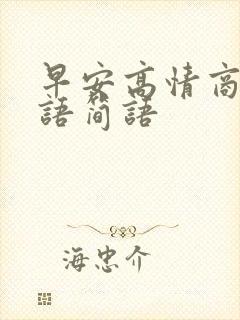 早安高情商
語简語
海忠介